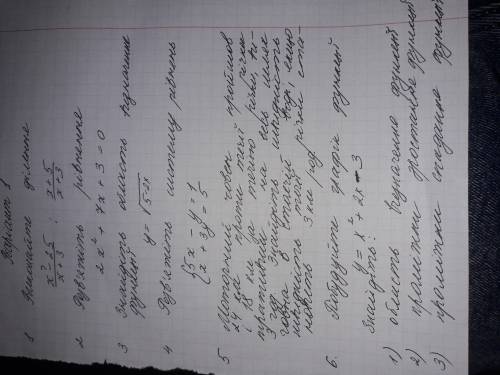 Варіант 1
1 Виконайте ділення
x² - 25 / x + 3 : x + 5 / x + 3
2 Розв'яжіть рівняння
2x² + 7x + 3 = 0
3 Знайдіть область визначення
функції y = √5-2x
4 Розв'яжіть систему рівнянь
{5x - y = 1
{x + 3y = 5
5 човен
24 км проти течії
і 18 км за течією
на весь шлях
3 год. Знайдіть швидкість
човна в стоячій воді, якщо
швидкість течії річки ста-
новить 3 км/год
6. Побудуйте графік функції
y = x² + 2x - 3
Знайдіть:
1) область визначення функції
2) проміжки зростання функції
3) проміжки спадання функції